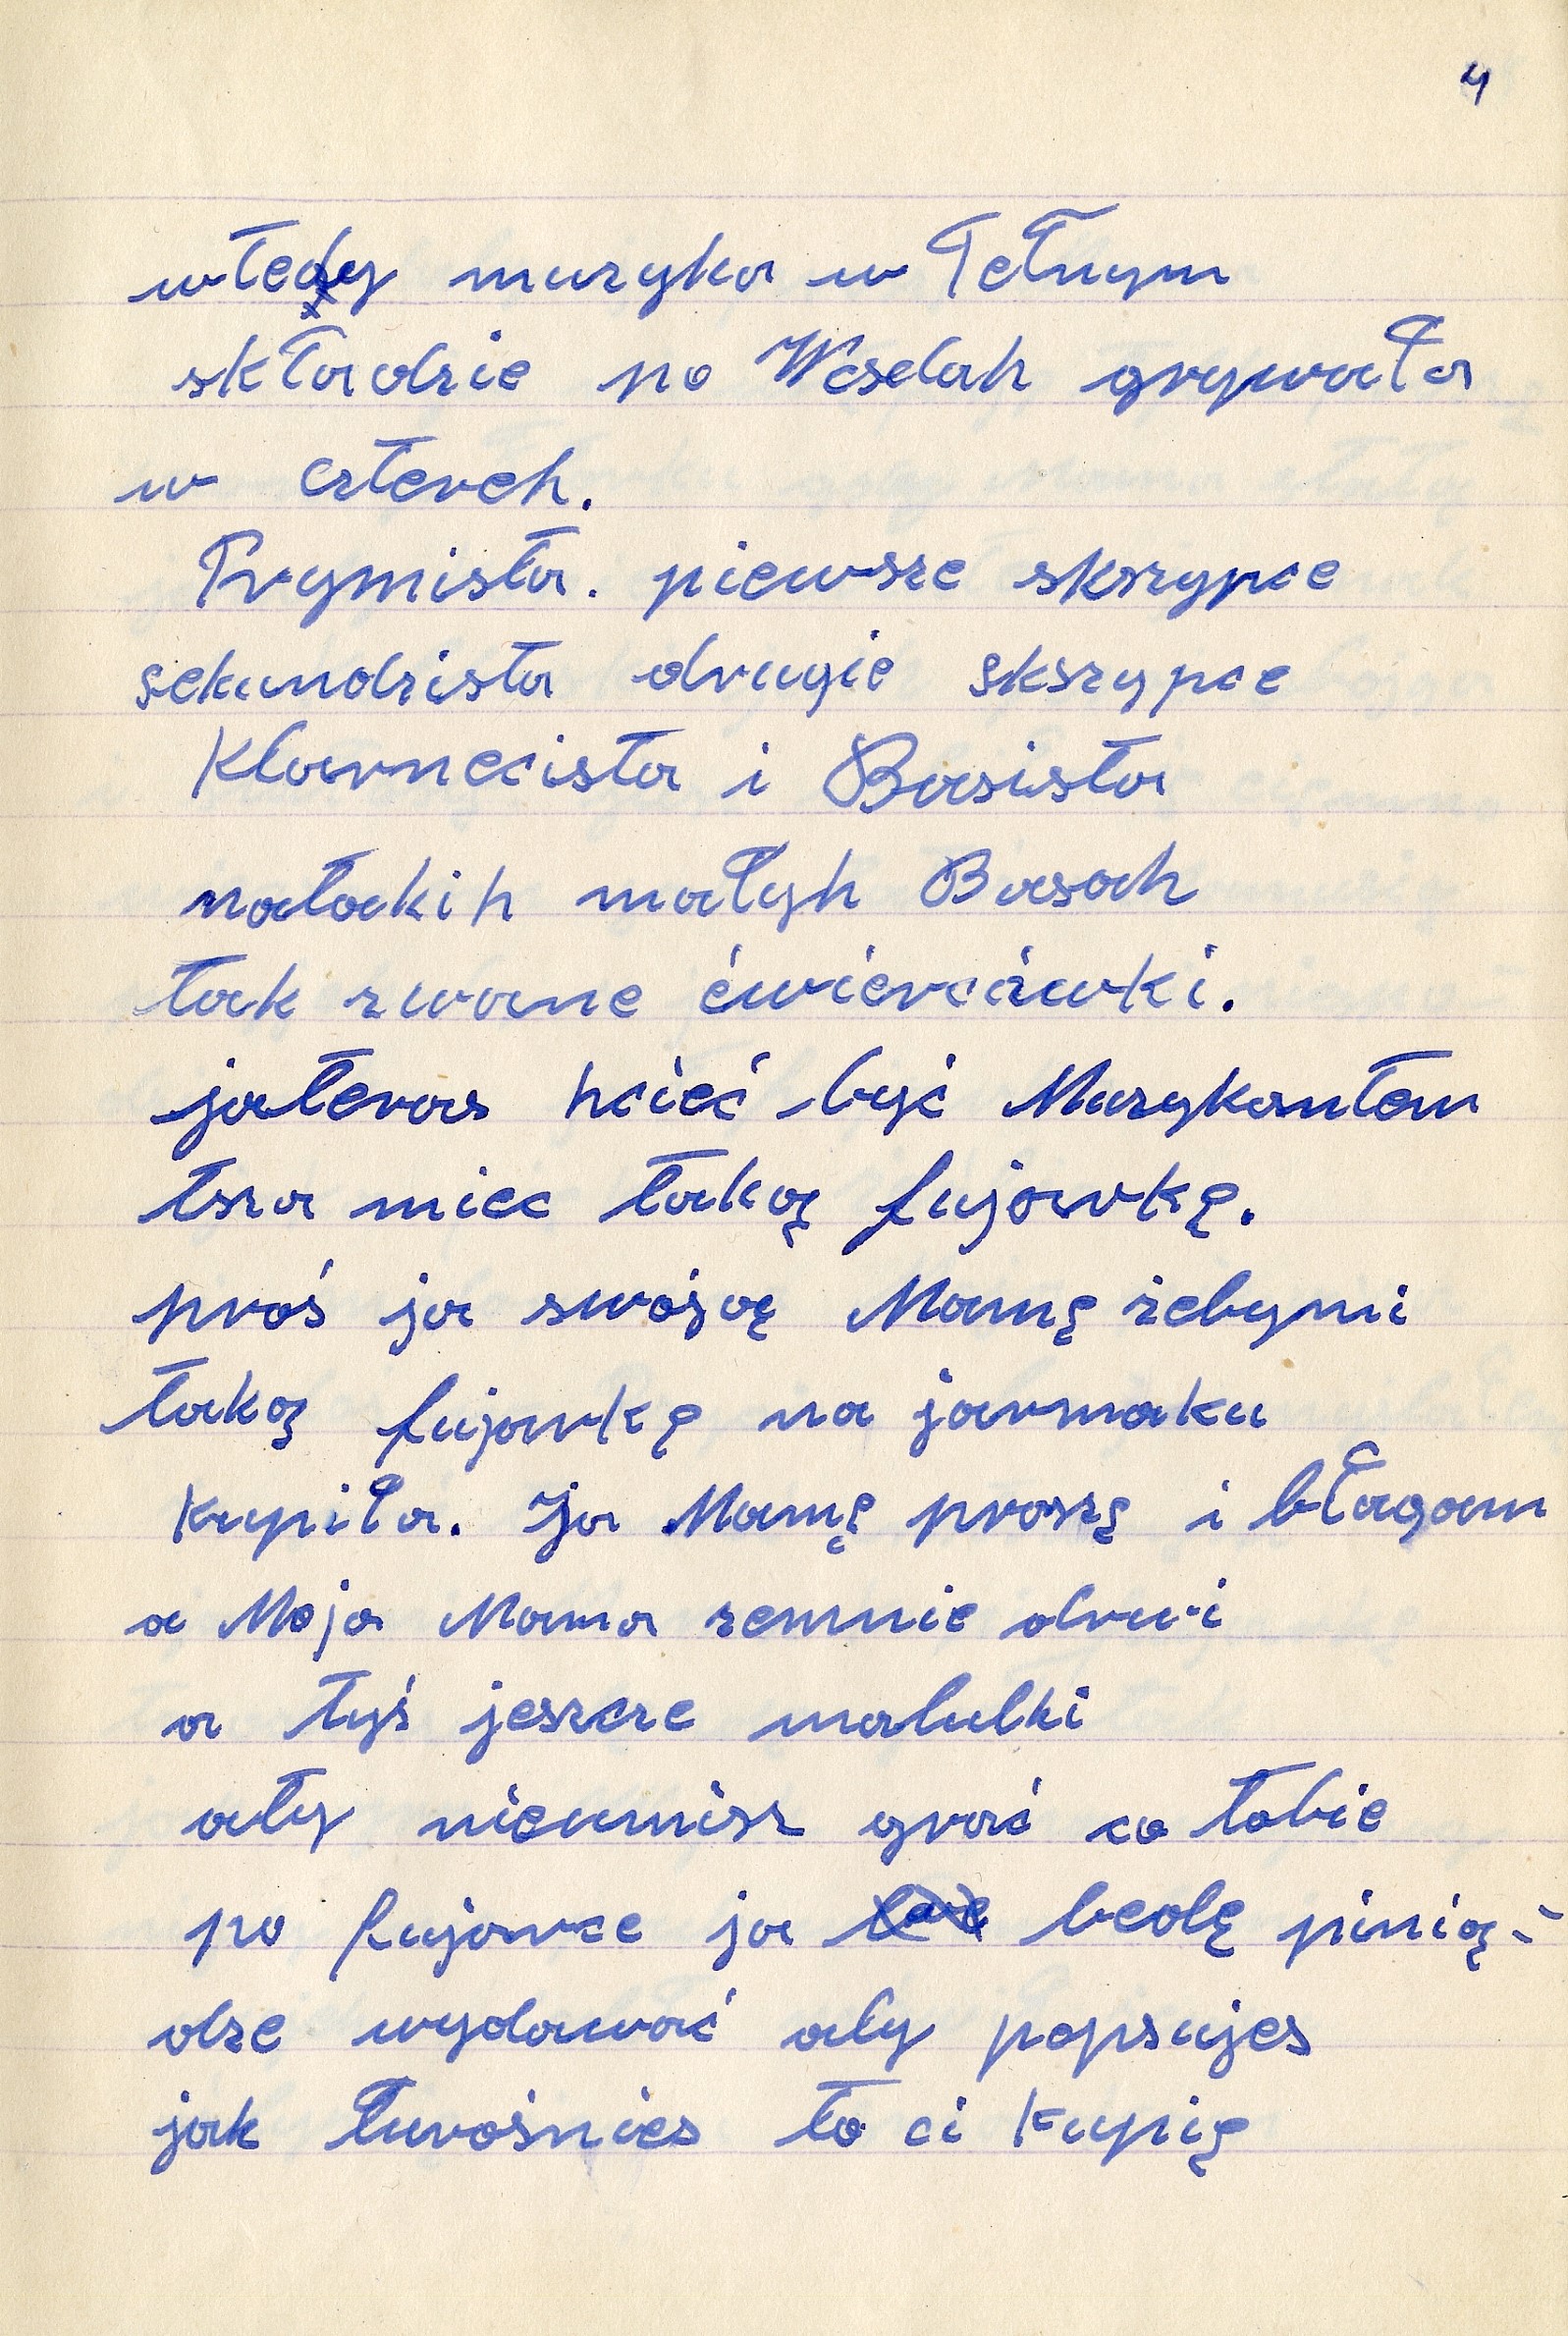 4
wtedy muzyka w Tełnym
składzie po Weselah grywała
w czterech.
Prymista. piewsze skszypce
sekundzista drugie skszypce
Klarnecista i Basista
natakih małyh Basah
tak zwane ćwierciówki.
jateras hcieć być Muzykantem
tsza miec taką fujarkę.
proś ja swojoę Mamę żebymi
taką fujarkę na jarmaku
kupiła. Ja Mamę proszę i błagam
a Moja Mama zemnie drwi
a tyś jeszcze malulki
aty nieumisz grać co tobie
po fujarce ja bedę pinią-
dze wydawać aly popsujes
jak turośnies to ci kupię